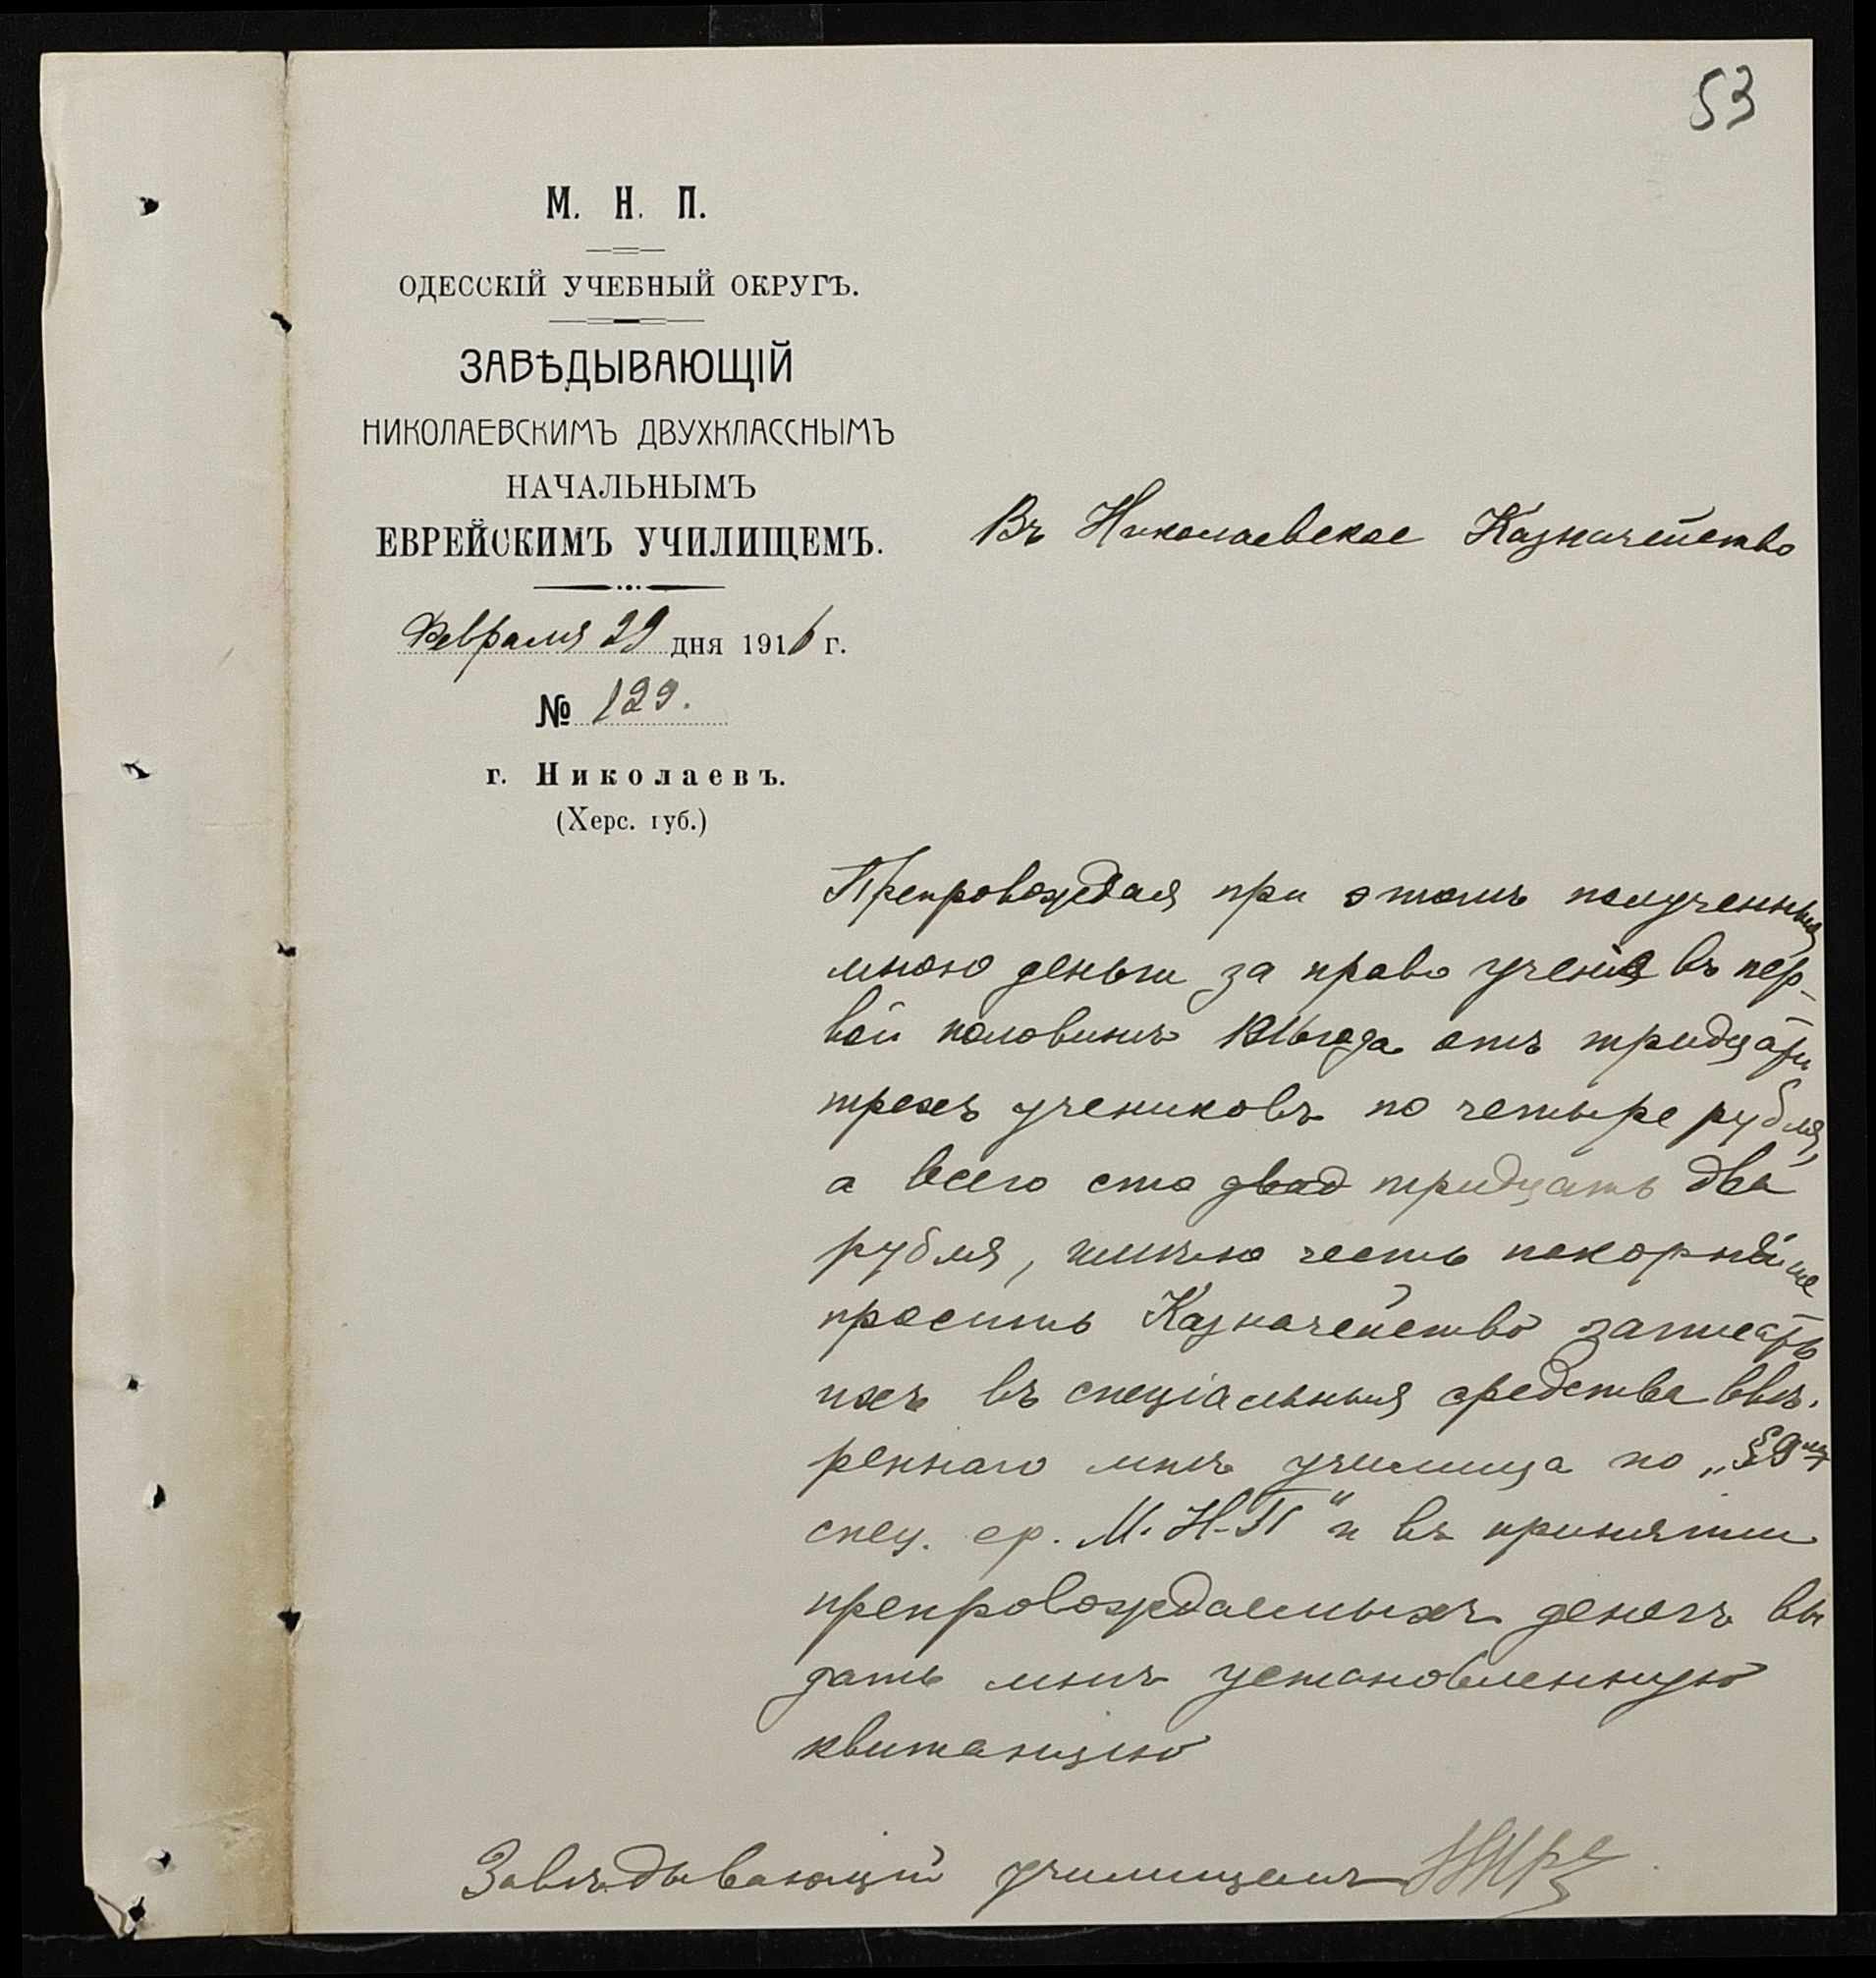 53
М. Н. П.
ОДЕССКІЙ УЧЕБНЫЙ ОКРУГЪ.
ЗАВѢДЫВАЮЩІЙ
НИКОЛАЕВСКИМЪ ДВУХКЛАССНЫМЪ
НАЧАЛЬНЫМЪ
ЕВРЕЙСКИМЪ УЧИЛИЩЕМЪ.
Въ Николаевское Казначейство
Февраля 29 дня 1916 г.
№ 129.
г. Николаевъ.
(Херс. губ.)
Препровождая при этомъ полученныя
мною деньги за право ученія въ пер-
вой половинѣ 1916 года отъ тридцати
трехъ учениковъ по четыре рубля,
а всего сто двад тридцать два
рубля, имѣю честь покорнѣйше
просить Казначейство записать
ихъ въ спеціальныя средства ввѣ-
реннаго мнѣ училища по „§ 9
спец. ср. М. Н. П" и въ принятіи
препровождаемыхъ денегъ вы
дать мнѣ установленную
квитанцію
Завѣдывающій училищемъ